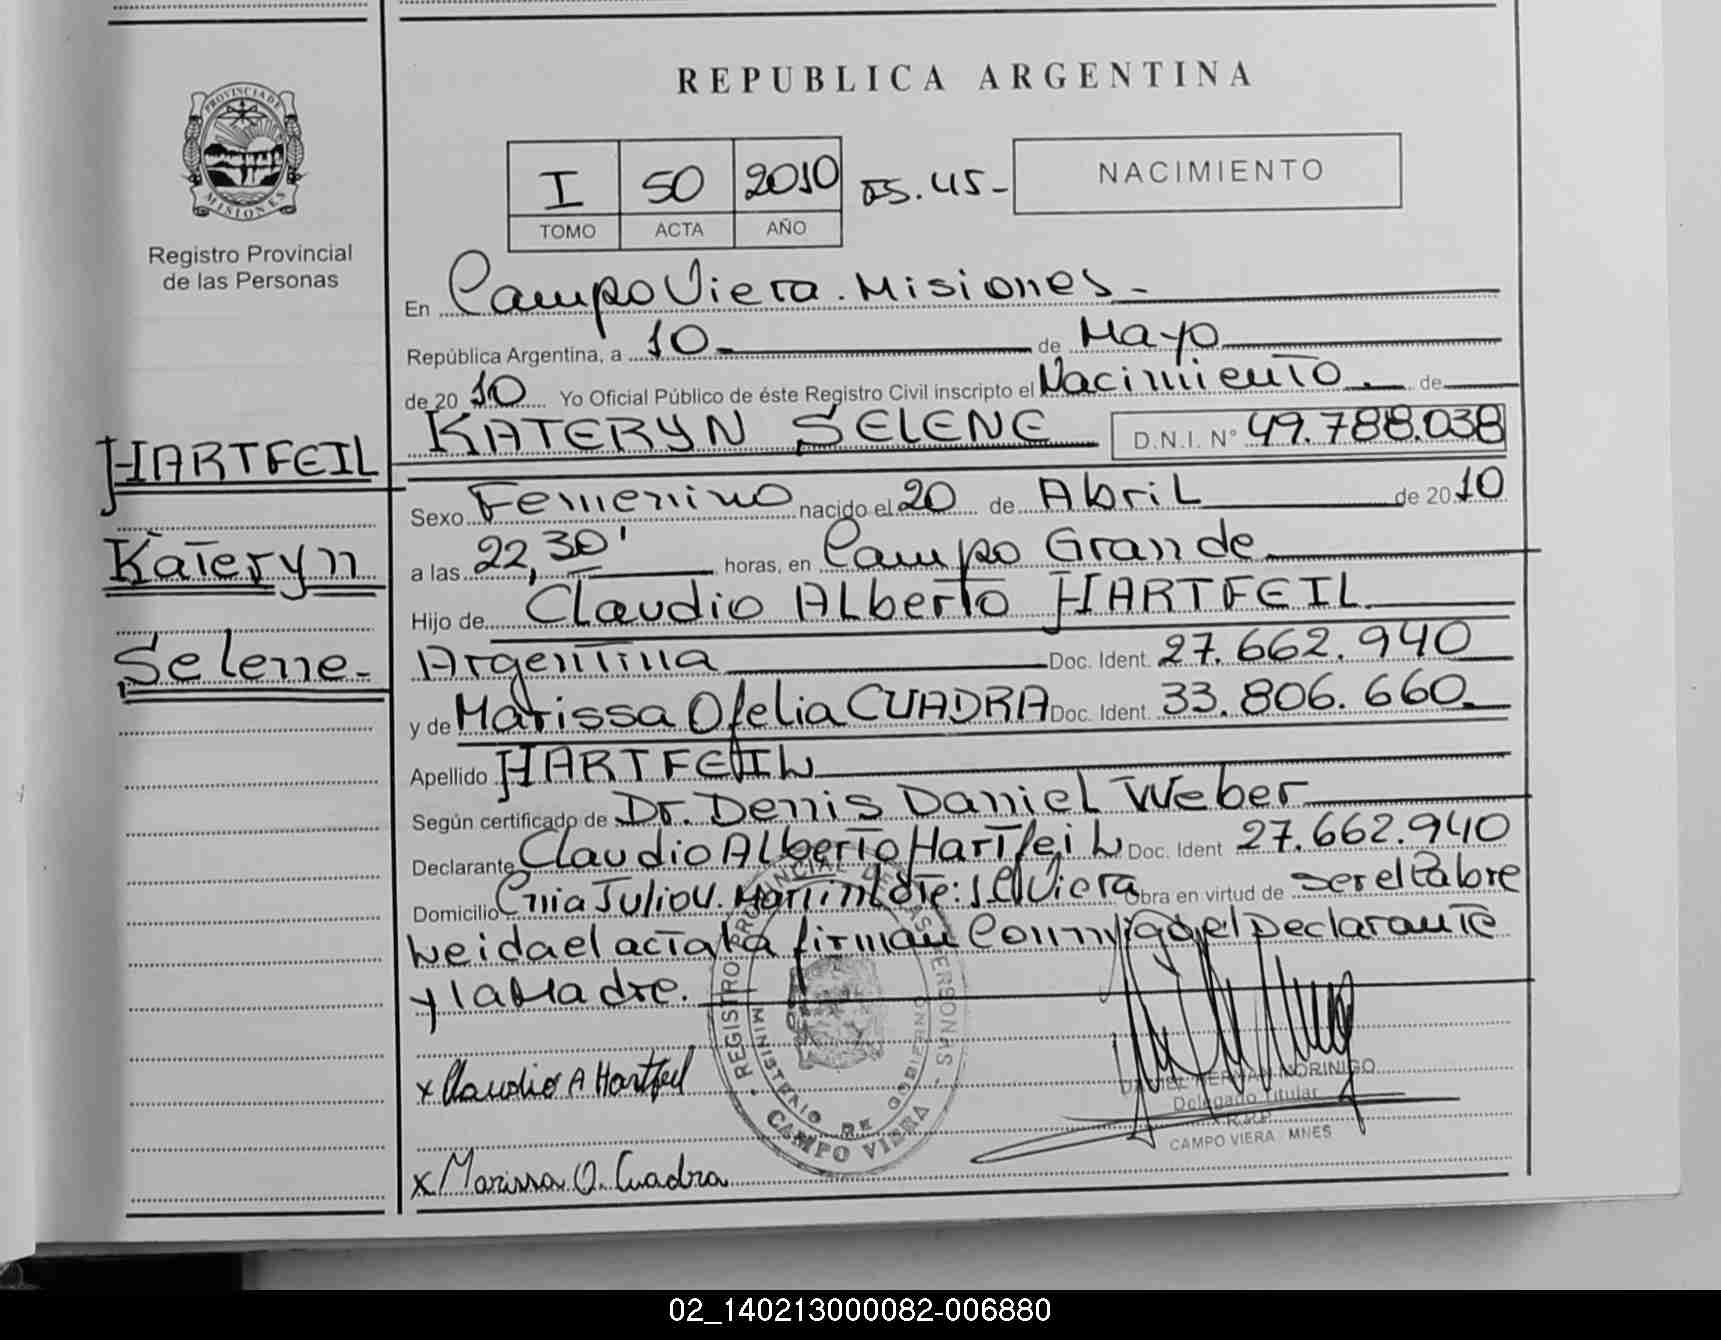 REPUBLICA ARGENTINA
PROVINCIA DE
MISIONES
Registro Provincial
de las Personas
I 50 2010 45.-
TOMO ACTA AÑO
NACIMIENTO
En Campo Viera. Misiones.-
República Argentina, a 10 de Mayo
de 2010 Yo Oficial Público de éste Registro Civil inscripto el Nacimiento. de
KATERYN SELENE D.N.I. N° 49.788.038
HARTFEIL
Kateryn
Selene.-
Sexo Femenino nacido el 20 de Abril de 2010
a las 22,30' horas, en Campo Grande
Hijo de Claudio Alberto HARTFEIL
Argentina Doc. Ident. 27.662.940
y de Marissa Ofelia CUADRA Doc. Ident. 33.806.660.
Apellido HARTFEIL
Según certificado de Dr. Denis Daniel Weber
Declarante Claudio Alberto Hartfeil Doc. Ident 27.662.940
Domicilio Julio U. Martin Viera Obra en virtud de ser el Padre
Leida el acta la firman Conmigo el Declarante
y la Madre.
x Claudio A Hartfeil
x Marissa O. Cuadra
REGISTRO PROVINCIAL DE LAS PERSONAS
MINISTERIO DE GOBIERNO
CAMPO VIERA
DANIEL HERNAN NORINIGO
Delegado Titular
R.P.P.
CAMPO VIERA MNES
02_140213000082-006880